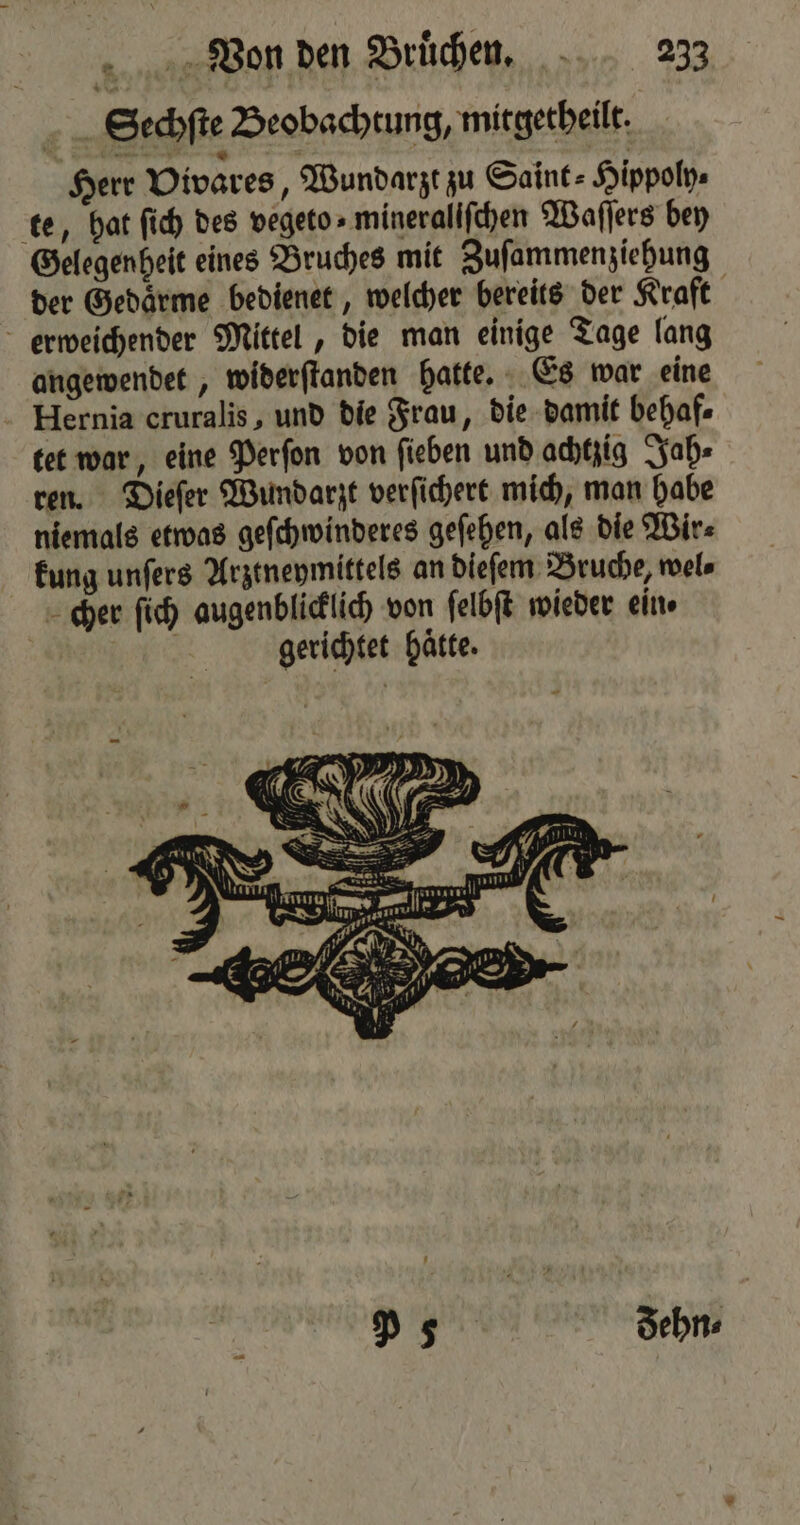 Von den Bruͤchen. 233
Sechſte Beobachtung, mitgetheilt.
Herr Vivares, Wundarzt zu Saint-Hippoly-
te, hat ſich des vegeto-mineraliſchen Waſſers bey
Gelegenheit eines Bruches mit Zuſammenziehung
der Gedaͤrme bedienet, welcher bereits der Kraft
erweichender Mittel, die man einige Tage lang
angewendet, widerſtanden hatte. Es war eine
Hernia cruralis, und die Frau, die damit behaf-
tet war, eine Perſon von ſieben und achtzig Jah-
ren. Dieſer Wundarzt verſichert mich, man habe
niemals etwas geſchwinderes geſehen, als die Wir-
kung unſers Arztneymittels an dieſem Bruche, wel-
cher ſich augenblicklich von ſelbſt wieder ein-
gerichtet haͤtte.
P 5 Zehn-